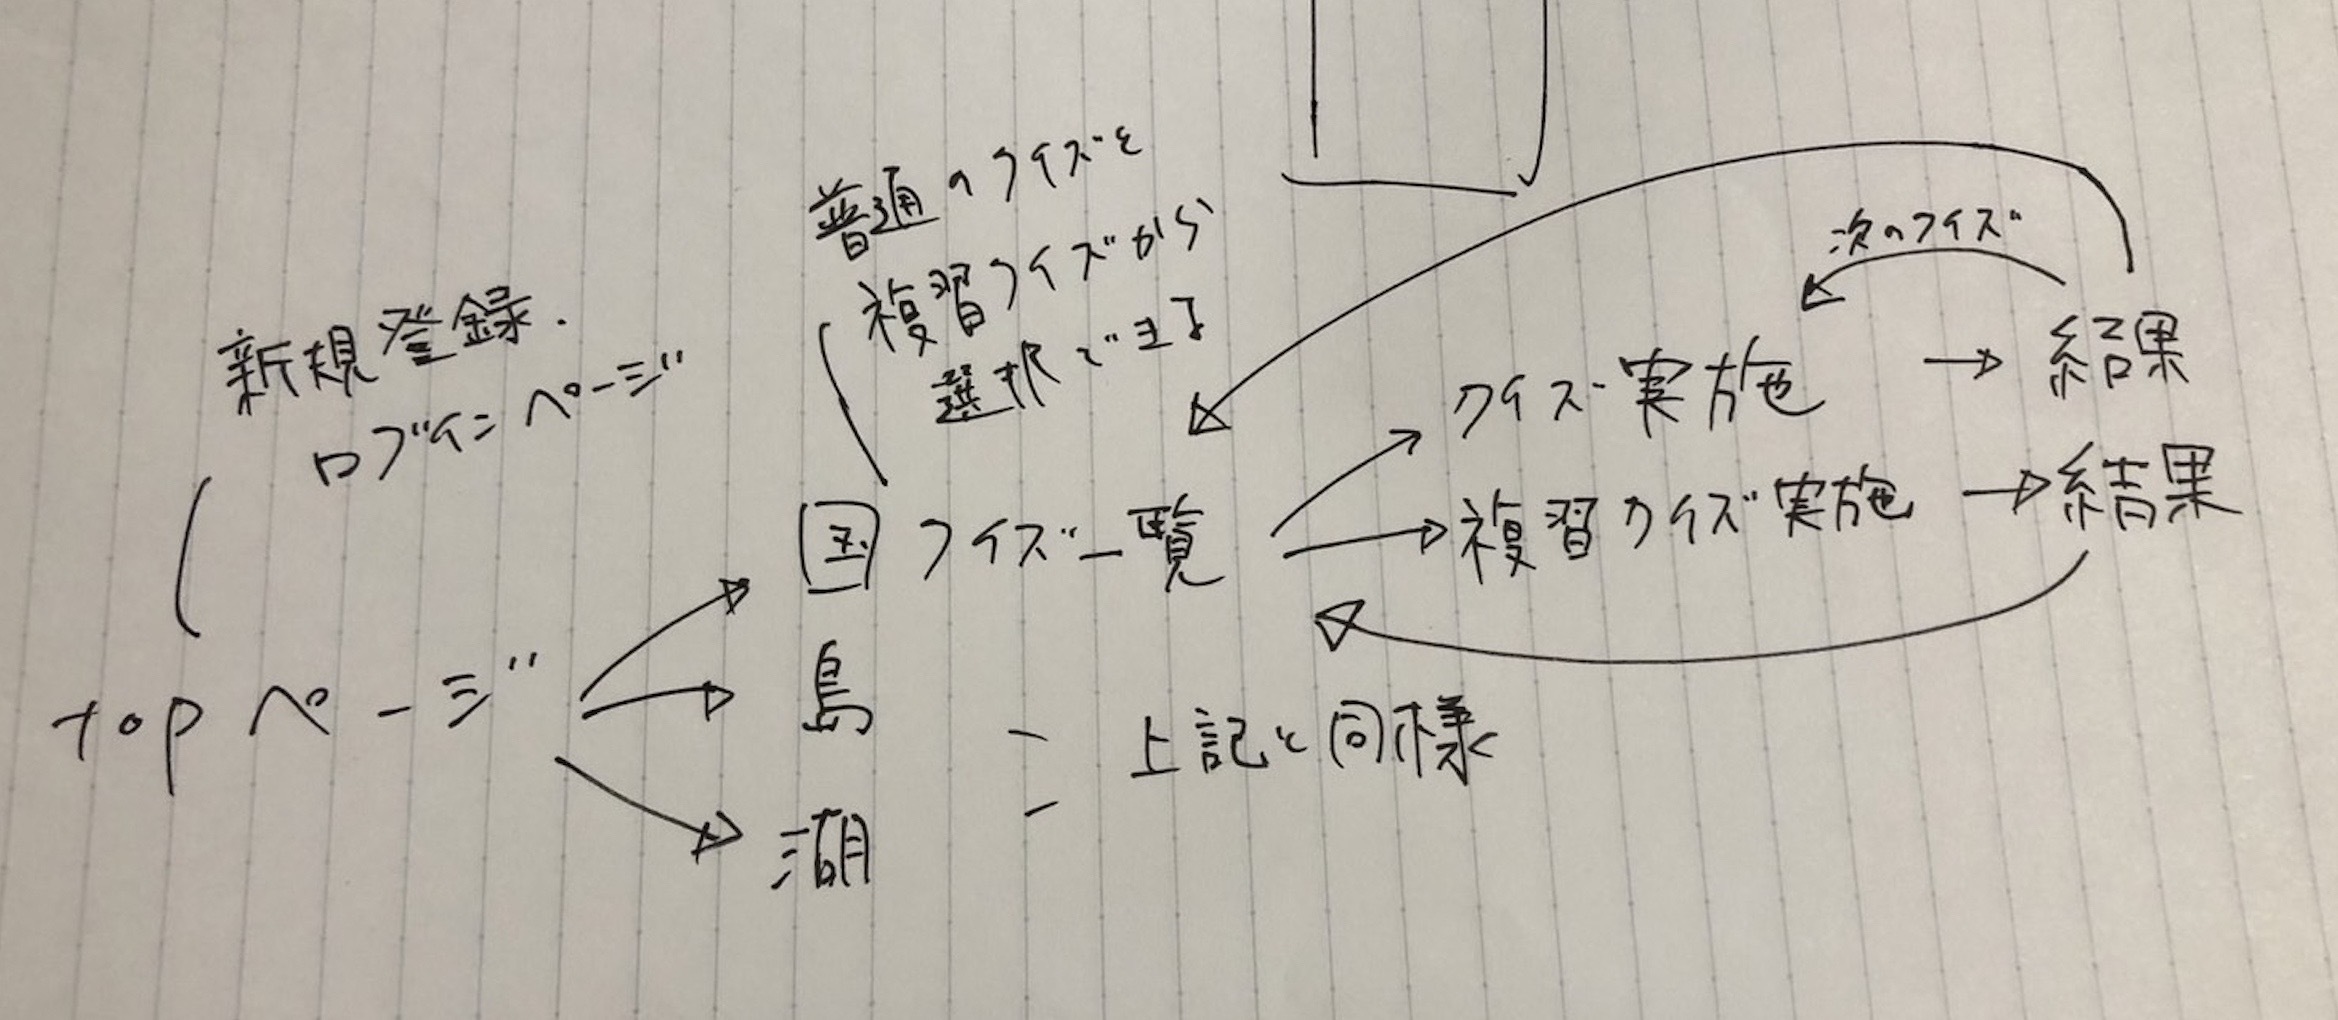 新規登録・
ログインページ
topページ
普通のクイズと
複習クイズから
選択できる
国クイズ一覧
島
湖
上記と同様
クイズ実施
複習クイズ実施
次のクイズ
結果
結果